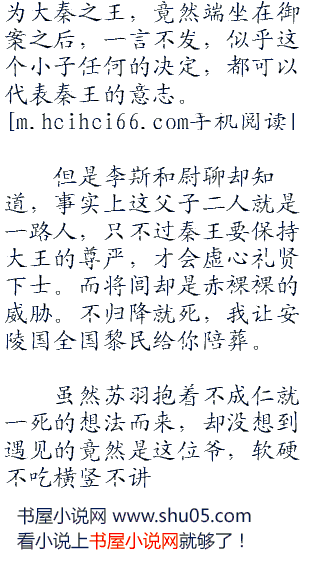 为大秦之王，竟然端坐在御
案之后，一言不发，似乎这
个小子任何的决定，都可以
代表秦王的意志。
[m.hcihci66.com手机阅读|
但是李斯和尉聊却知
道，事实上这父子二人就是
一路人，只不过秦王要保持
大王的尊严，才会虚心礼贤
下士。而将闾却是赤裸裸的
威胁。不归降就死，我让安
陵国全国黎民给你陪葬。
虽然苏羽抱着不成仁就
一死的想法而来，却没想到
遇见的竟然是这位爷，软硬
不吃横竖不讲
书屋小说网 www.shu05.com
看小说上书屋小说网就够了！